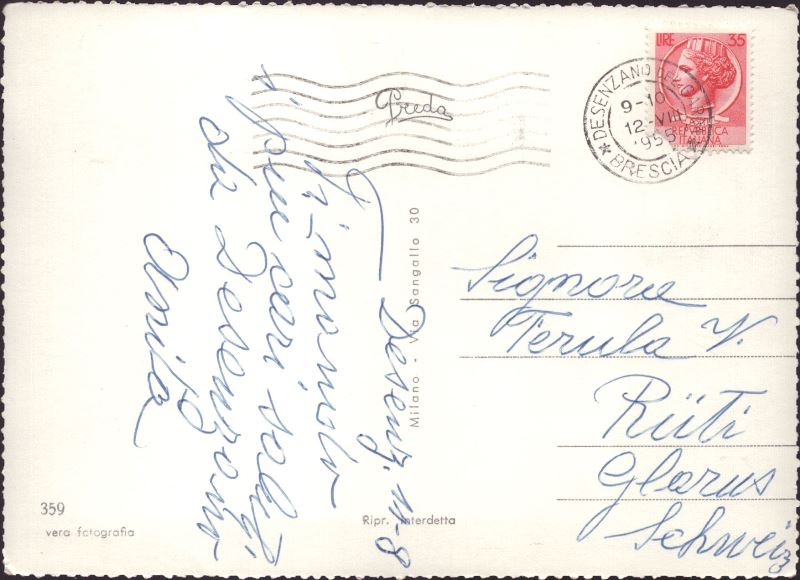 Desenz. 11-8
Vi mando
i più cari saluti
da Desenzano
Anita
Greda
LIRE 35
REPUBBLICA
ITALIANA
DESENZANO DEL GARDA
9-10
12-VIII
1955
BRESCIA
Signora
Ferula V.
Rüti
Glarus
Schweiz
Milano - Via Sangallo 30
359
vera fotografia
Ripr. interdetta